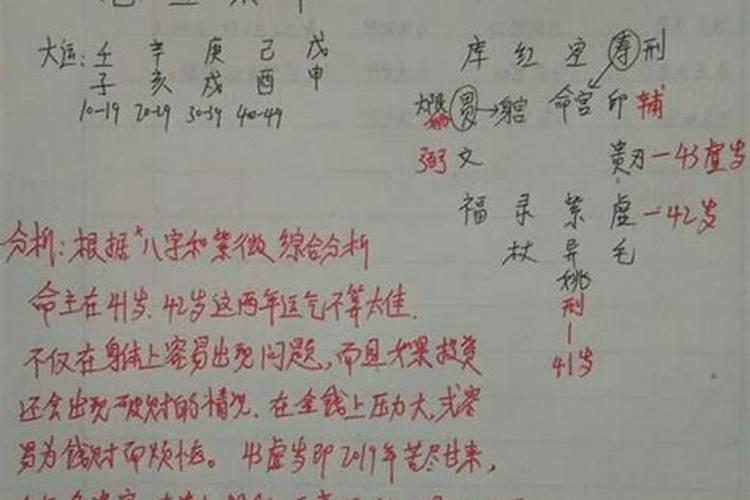 大运: 壬 辛 庚 己 戊
子 亥 戌 酉 申
10-19 20-29 30-39 40-49
库 红 空 寿 刑
大限 贯→ 命宫 印 辅
弼 文 贵刃—43虚岁
福 录 紫 虚—42岁
杖 异 毛
姚
刑
41岁
分析: 根据"八字和紫微综合分析
命主在41岁、42岁这两年运气不算太佳.
不仅在身体上容易出现问题,而且如果投资
还会出现破财的情况、在金钱上压力大,或容
易为钱财而烦恼。43虚岁即2019年苦尽甘来,